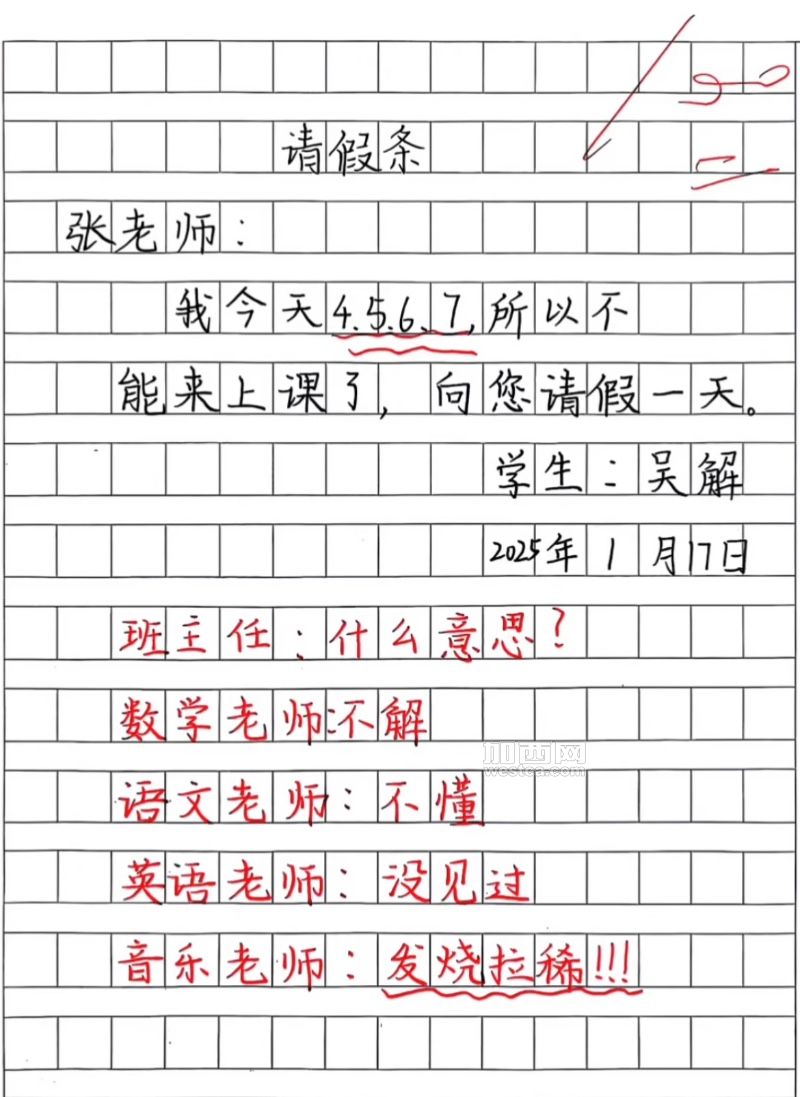 请假条
张老师：
我今天4.5.6、7,所以不
能来上课了，向您请假一天。
学生：吴解
2025年1月17日
班主任：什么意思？
数学老师:不解
语文老师：不懂
加西网
westca.com
英语老师：没见过
音乐老师：发烧拉稀!!!